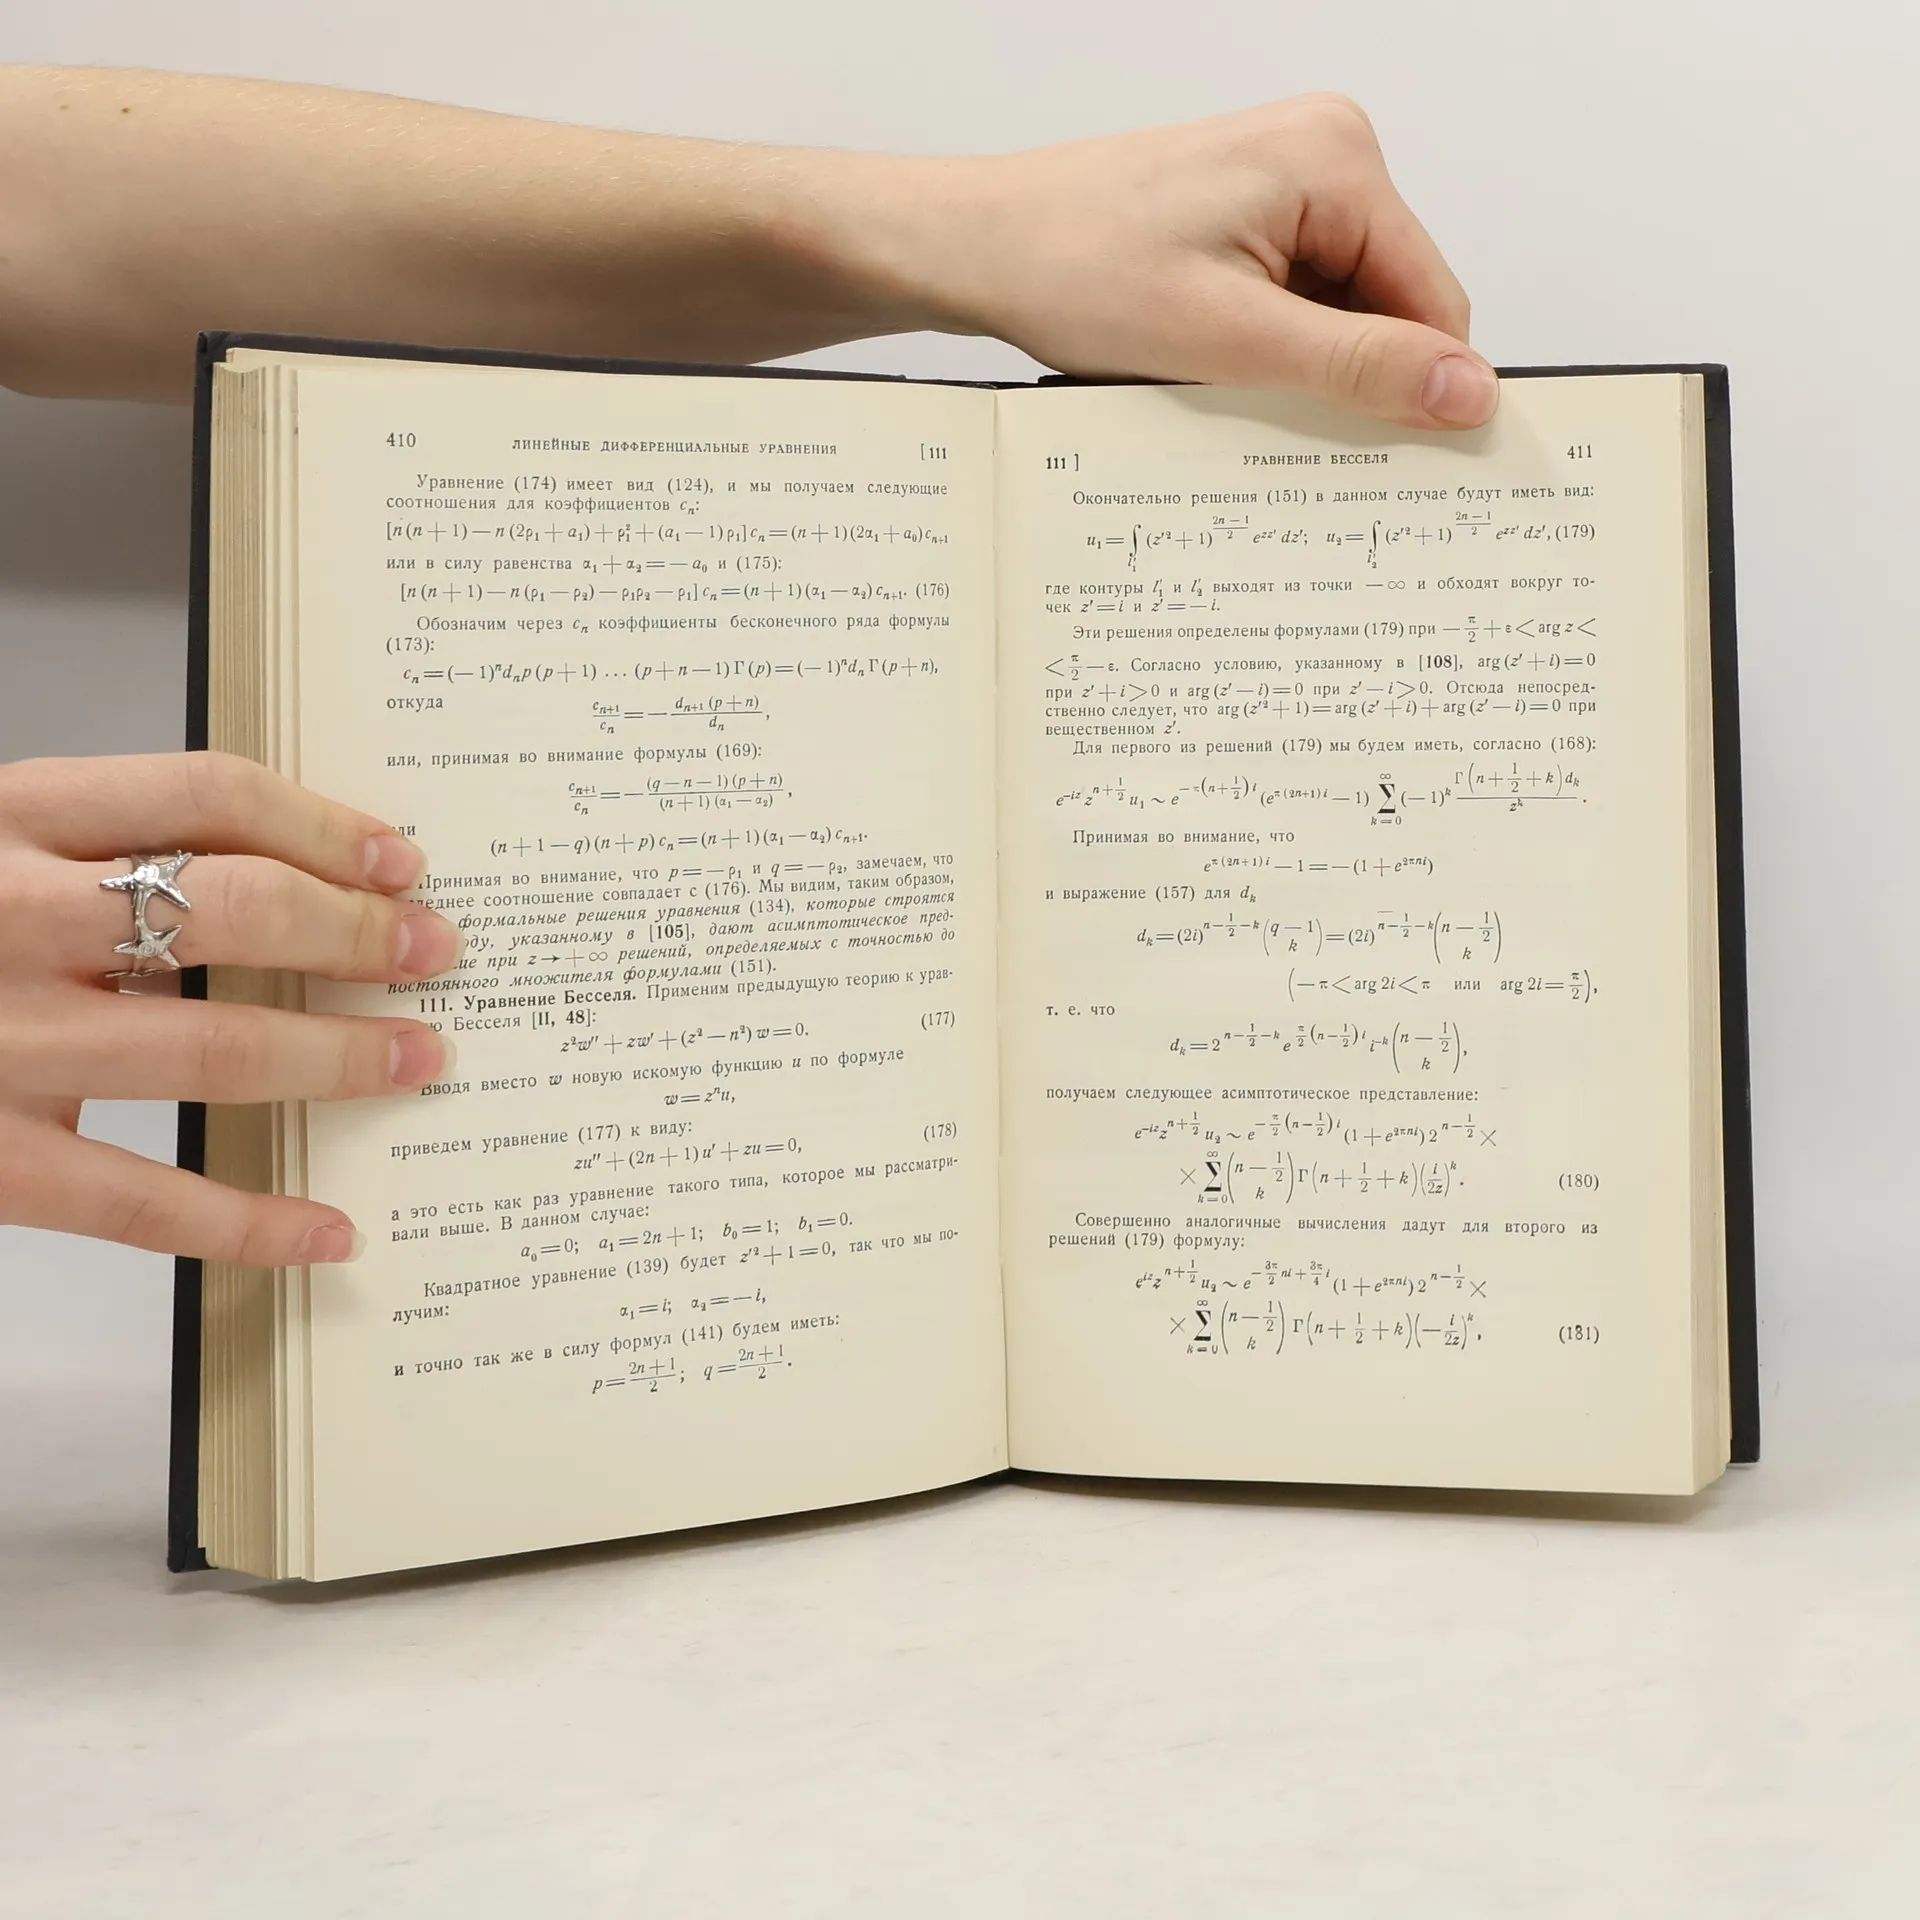 410 ЛИНЕЙНЫЕ ДИФФЕРЕНЦИАЛЬНЫЕ УРАВНЕНИЯ [111
Уравнение (174) имеет вид (124), и мы получаем следующие
соотношения для коэффициентов cₙ:
[n (n + 1) — n (2ρ₁ + a₁) + ρ₁² + (a₁ — 1) ρ₁] cₙ = (n + 1) (2α₁ + a₀) cₙ₊₁
или в силу равенства α₁ + α₂ = — a₀ и (175):
[n (n + 1) — n (ρ₁ — ρ₂) — ρ₁ρ₂ — ρ₁] cₙ = (n + 1) (α₁ — α₂) cₙ₊₁. (176)
Обозначим через cₙ коэффициенты бесконечного ряда формулы
(173):
cₙ = (— 1)ⁿ dₙ p (p + 1) ... (p + n — 1) Γ (p) = (— 1)ⁿ dₙ Γ (p + n),
откуда
cₙ₊₁ / cₙ = — dₙ₊₁ (p + n) / dₙ,
или, принимая во внимание формулы (169):
cₙ₊₁ / cₙ = — (q — n — 1) (p + n) / (n + 1) (α₁ — α₂),
(n + 1 — q) (n + p) cₙ = (n + 1) (α₁ — α₂) cₙ₊₁.
Принимая во внимание, что p = — ρ₁ и q = — ρ₂, замечаем, что
соотношение совпадает с (176). Мы видим, таким образом,
формальные решения уравнения (134), которые строятся
указанному в [105], дают асимптотическое пред-
при z → + ∞ решений, определяемых с точностью до
постоянного множителя формулами (151).
111. Уравнение Бесселя. Применим предыдущую теорию к урав-
Бесселя [II, 48]:
z²w″ + zw′ + (z² — n²) w = 0. (177)
Вводя вместо w новую искомую функцию u по формуле
w = zⁿu,
приведем уравнение (177) к виду:
zu″ + (2n + 1) u′ + zu = 0, (178)
а это есть как раз уравнение такого типа, которое мы рассматри-
вали выше. В данном случае:
a₀ = 0; a₁ = 2n + 1; b₀ = 1; b₁ = 0.
Квадратное уравнение (139) будет z′² + 1 = 0, так что мы по-
лучим:
α₁ = i; α₂ = — i,
и точно так же в силу формул (141) будем иметь:
p = (2n + 1)/2; q = (2n + 1)/2.
111] УРАВНЕНИЕ БЕССЕЛЯ 411
Окончательно решения (151) в данном случае будут иметь вид:
u₁ = ∫_{l′₁} (z′² + 1)^{(2n — 1)/2} e^{zz′} dz′; u₂ = ∫_{l′₂} (z′² + 1)^{(2n — 1)/2} e^{zz′} dz′, (179)
где контуры l′₁ и l′₂ выходят из точки — ∞ и обходят вокруг то-
чек z′ = i и z′ = — i.
Эти решения определены формулами (179) при — π/2 + ε < arg z <
< π/2 — ε. Согласно условию, указанному в [108], arg (z′ + i) = 0
при z′ + i > 0 и arg (z′ — i) = 0 при z′ — i > 0. Отсюда непосред-
ственно следует, что arg (z′² + 1) = arg (z′ + i) + arg (z′ — i) = 0 при
вещественном z′.
Для первого из решений (179) мы будем иметь, согласно (168):
e^{-iz} z^{n + 1/2} u₁ ∼ e^{-π(n + 1/2) i} (e^{π (2n+1) i} — 1) ∑_{k=0}^{∞} (— 1)ᵏ Γ(n + 1/2 + k) dₖ / zᵏ.
Принимая во внимание, что
e^{π (2n+1) i} — 1 = — (1 + e^{2πni})
и выражение (157) для dₖ
dₖ = (2i)^{n — 1/2 — k} (q — 1 / k) = (2i)^{n — 1/2 — k} (n — 1/2 / k)
(— π < arg 2i < π или arg 2i = π/2),
т. е. что
dₖ = 2^{n — 1/2 — k} e^{π/2 (n — 1/2) i} i^{-k} (n — 1/2 / k),
получаем следующее асимптотическое представление:
e^{-iz} z^{n + 1/2} u₂ ∼ e^{— π/2 (n — 1/2) i} (1 + e^{2πni}) 2^{n — 1/2} ×
× ∑_{k=0}^{∞} (n — 1/2 / k) Γ(n + 1/2 + k) (i/2z)ᵏ. (180)
Совершенно аналогичные вычисления дадут для второго из
решений (179) формулу:
e^{iz} z^{n + 1/2} u₂ ∼ e^{— 3π/2 ni + 3π/4 i} (1 + e^{2πni}) 2^{n — 1/2} ×
× ∑_{k=0}^{∞} (n — 1/2 / k) Γ(n + 1/2 + k) (— i/2z)ᵏ, (181)